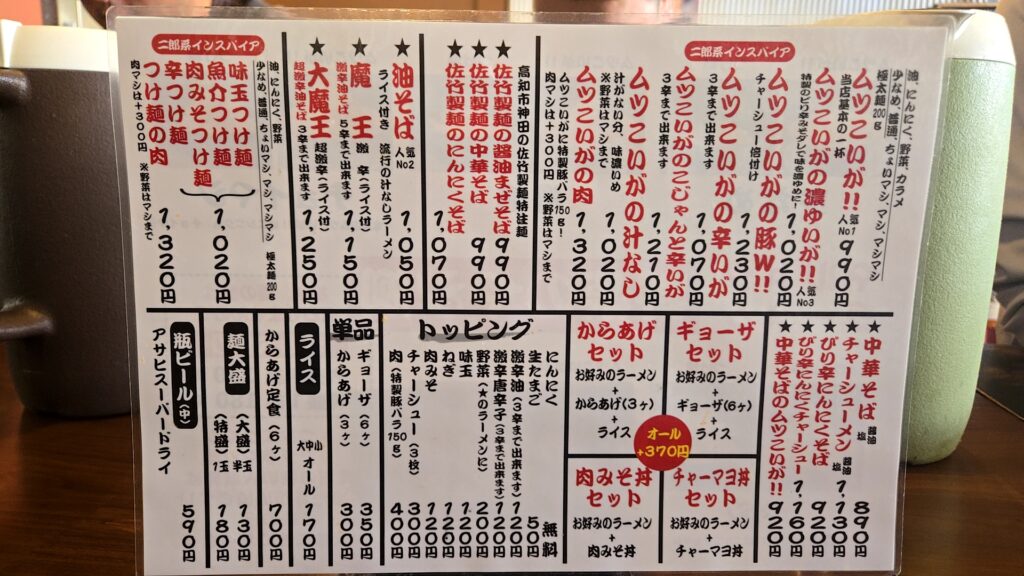 二郎系インスパイア
油、にんにく、野菜、カラメ
少なめ、普通、ちょいマシ、マシ、マシマシ
極太麺200g
ムツこいが!! 人気No1 990円
当店基本の一杯
ムツこいがの濃ゆいが!! 人気No3 1,020円
特製のピリ辛みそダレで味を濃ゆめに!
ムツこいがの豚W!! 1,230円
チャーシュー倍付け
ムツこいがの辛いが 1,070円
3辛まで出来ます
ムツこいがのこじゃんと辛いが 1,210円
3辛まで出来ます
ムツこいがの汁なし 1,020円
汁がない分、味濃いめ
※野菜はマシまで
ムツこいがの肉 1,320円
ムツこいがに特製豚バラ150g!
肉マシは+300円 ※野菜はマシまで
高知市神田の佐竹製麺特注麺
★佐竹製麺の醤油まぜそば 990円
★佐竹製麺の中華そば 990円
★佐竹製麺のにんにくそば 1,070円
★油そば 人気No2 1,050円
ライス付き 流行の汁なしラーメン
★魔王 激辛(ライス付) 1,150円
激辛油そば 5辛まで出来ます
★大魔王 超激辛(ライス付) 1,250円
超激辛油そば 3辛まで出来ます
二郎系インスパイア
油、にんにく、野菜
少なめ、普通、ちょいマシ、マシ、マシマシ 極太麺200g
味玉つけ麺
魚介つけ麺
肉みそつけ麺
辛つけ麺
1,020円
つけ麺の肉 1,320円
肉マシは+300円 ※野菜はマシまで
★中華そば 醤油 塩 890円
★チャーシューメン 醤油 塩 1,130円
★ぴり辛にんにくそば 920円
★ぴり辛にんにくチャーシュー 1,160円
★中華そばのムツこいが!! 920円
ギョーザセット
お好みのラーメン
+
ギョーザ(6ヶ)
+
ライス
からあげセット
お好みのラーメン
+
からあげ(3ヶ)
+
ライス
オール
+370円
チャーマヨ丼セット
お好みのラーメン
+
チャーマヨ丼
肉みそ丼セット
お好みのラーメン
+
肉みそ丼
トッピング
にんにく 無料
生たまご 50円
激辛油(3辛まで出来ます) 120円
激辛唐辛子(3辛まで出来ます) 120円
野菜(★のラーメンに) 200円
味玉 120円
ねぎ 120円
肉みそ 120円
チャーシュー(3枚) 300円
肉(特製豚バラ150g) 400円
単品
ギョーザ(6ヶ) 350円
からあげ(3ヶ) 300円
ライス
大中小 オール 170円
からあげ定食(6ヶ) 700円
麺大盛
(大盛)半玉 130円
(特盛)1玉 180円
瓶ビール(中)
アサヒスーパードライ 590円